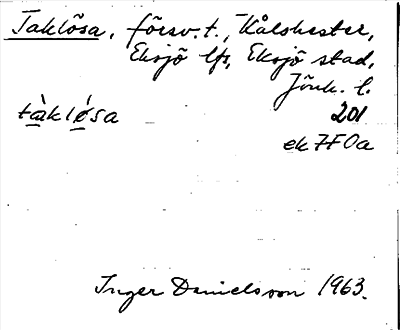 Taklösa, försv. t., Kålshester,
Eksjö lfs, Eksjö stad,
Jönk. l.
tàkló̱sa 201
ek 7F0a
Inger Danielsson 1963.